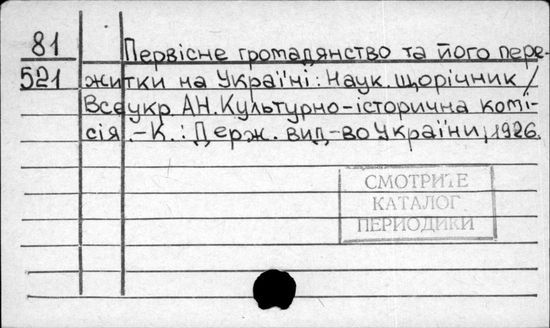 81 Первісне громадянство та його пере-
521 житки на Україні: Наук. щорічник /
Всеукр. АН. Культурно-історична комі-
сія .-К.: Держ. вид-во України, 1926.
СМОТРИТЕ
КАТАЛОГ
ПЕРИОДИКИ